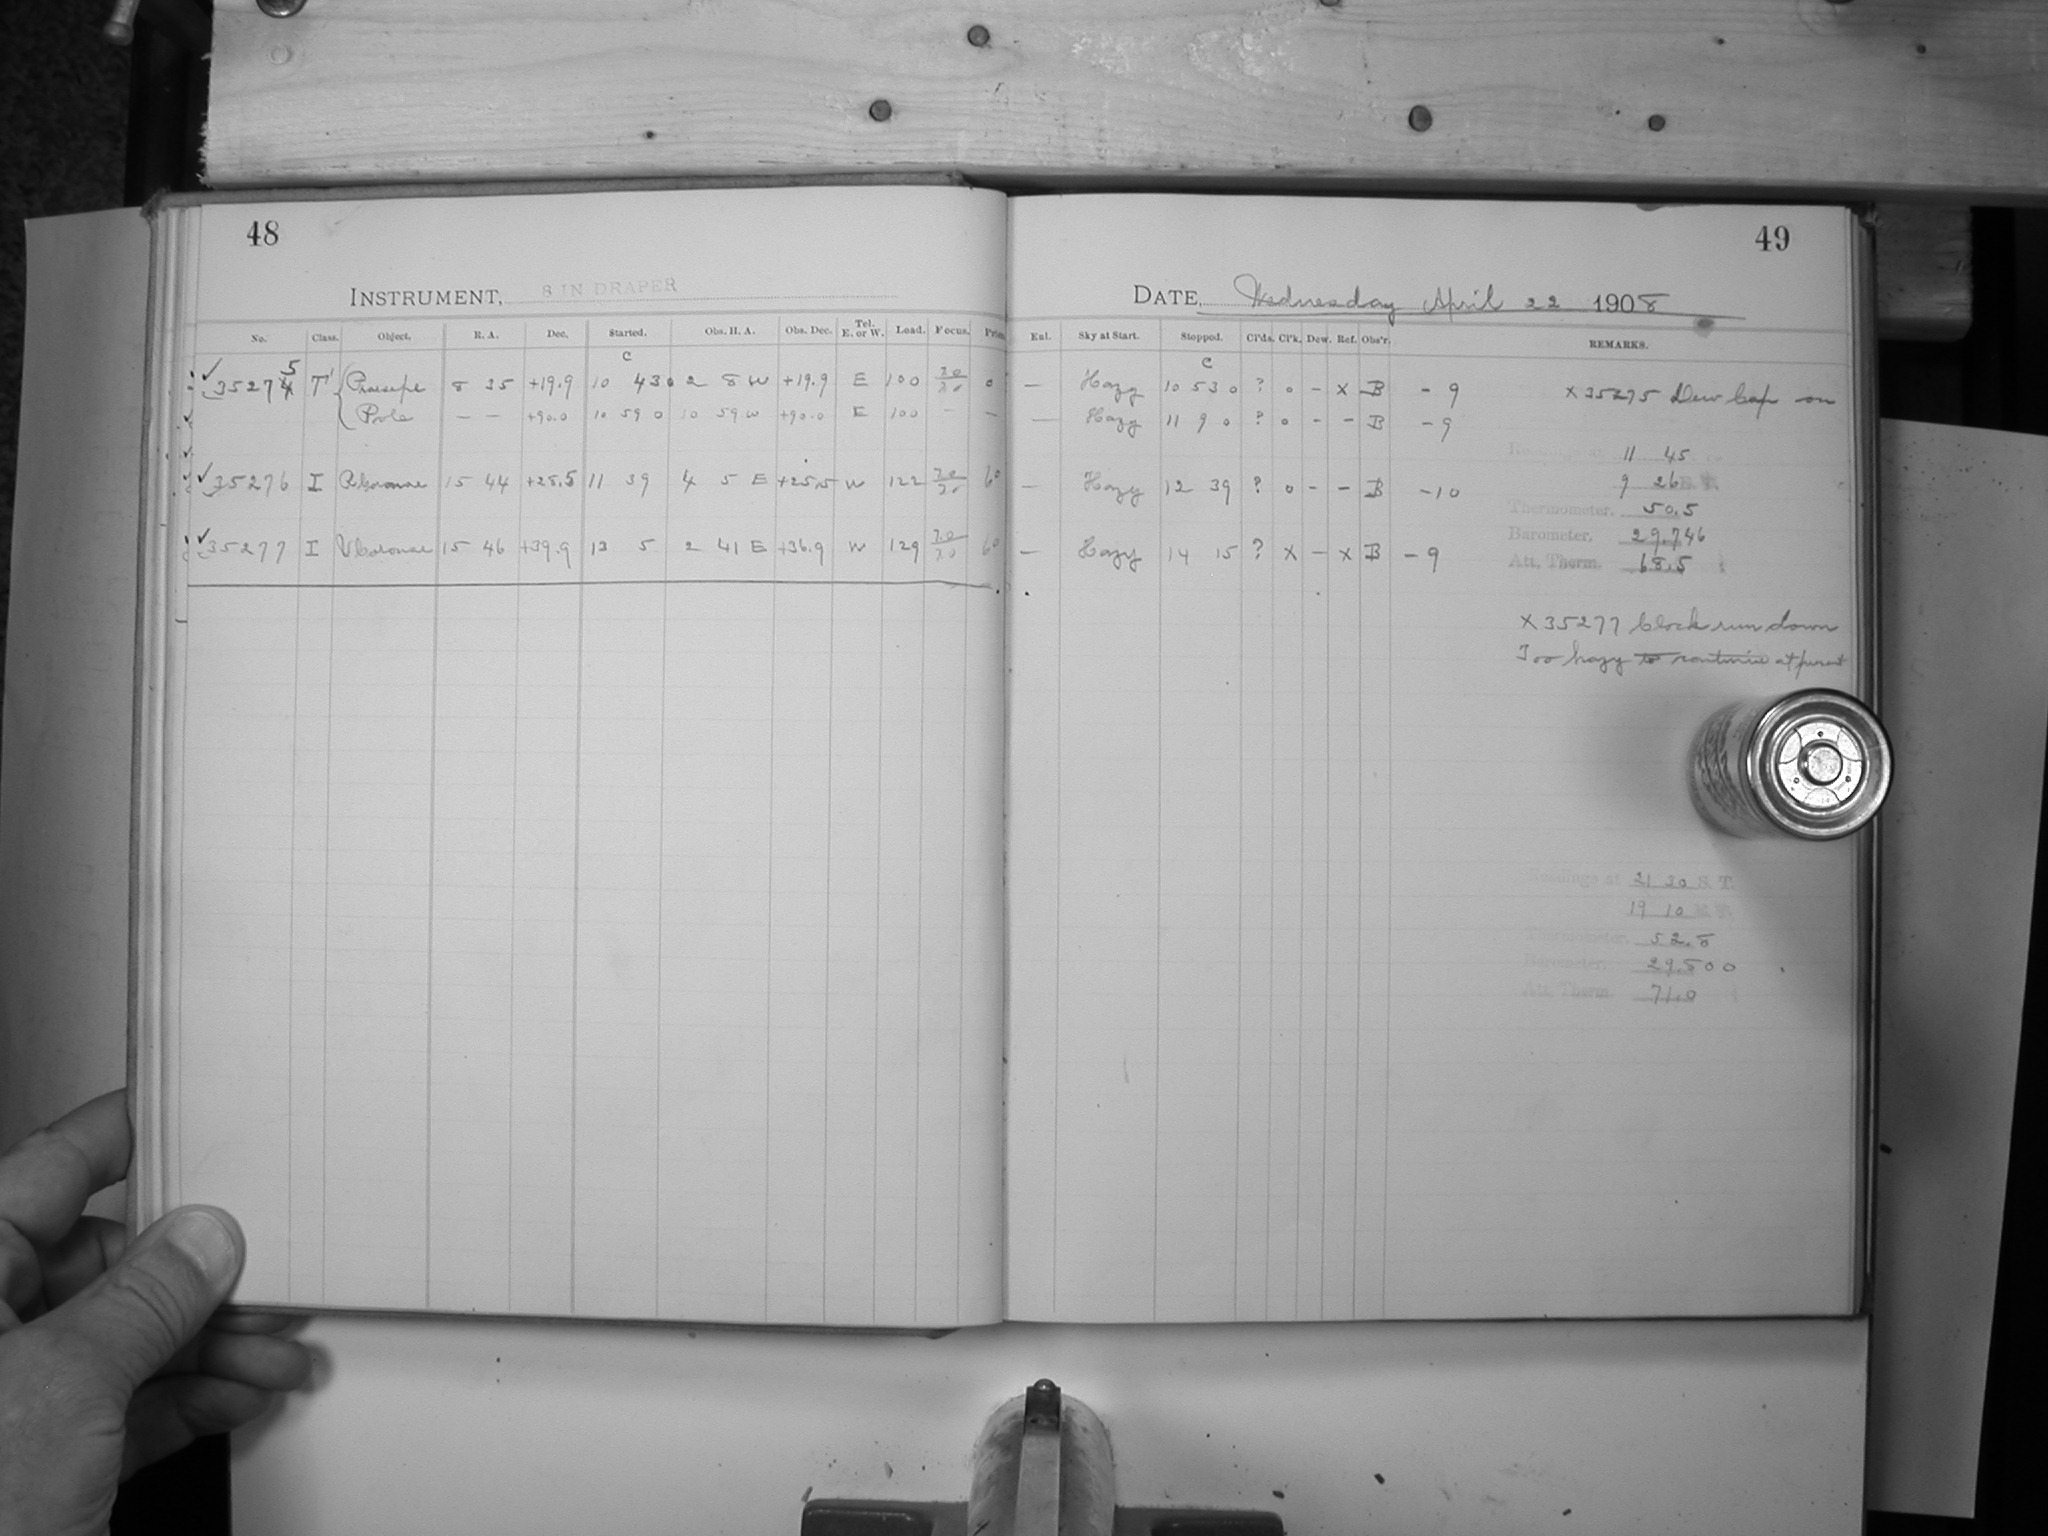 48
INSTRUMENT, 8 IN DRAPER
No. Class. Object. R. A. Dec. Started. Obs. H. A. Obs. Dec. Tel. E. or W. Load. Focus.
C
35275 T' Praesepe 8 35 +19.9 10 43 0 2 8 W +19.9 E 100 20/20 0
Pole — — +90.0 10 59 0 10 59 W +90.0 E 100 — —
35276 I R Coronae 15 44 +28.5 11 39 4 5 E W 122 20/20 60
35277 I V Coronae 15 46 +39.9 13 5 2 41 E +36.9 W 129 20/20 60
49
DATE, Wednesday April 22 1908
Enl. Sky at Start. Stopped. Cl'ds. Cl'k. Dew. Ref. Obs'r. REMARKS.
C
— Hazy 10 53 0 ? 0 – X B – 9 X 35275 Dew Cap on
— Hazy 11 9 0 ? 0 – – B – 9
Readings at 11 45
— Hazy 12 39 ? 0 – – B –10
9 26
Thermometer. 50.5
Barometer. 29.746
— Hazy 14 15 ? X – X B – 9
Att. Therm. 68.5
X 35277 Clock run down
Too hazy to continue at present
Readings at 21 30 S. T.
19 10
Thermometer. 52.8
Barometer. 29.500
Att. Therm. 71.0